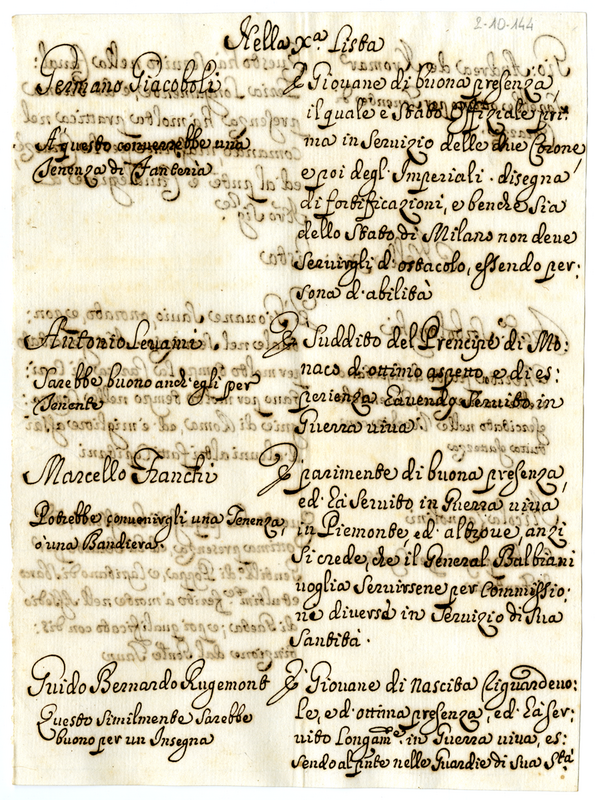 2-10-144
Nella xª Lista
Germano Giacoboli
A questo converrebbe una
Tenenza di Fanteria
È Giovane di buona presenza,
il quale è stato Offiziale pri:
ma in Servizio delle due Corone
e poi degl'Imperiali. disegna
di fortificazioni, e benchè sia
dello Stato di Milano non deve
servirgli d'ostacolo, essendo per:
sona d'abilità
Antonio Levami
Sarebbe buono anch'egli per
Tenente
È Suddito del Prencipe di Mo:
naco d'ottimo aspetto, e di es:
perienza, havendo servito in
Guerra viva
Marcello Franchi
Potrebbe convenirgli una Tenenza,
o una Bandiera.
È parimente di buona presenza,
ed hà servito in Guerra viva
in Piemonte ed altrove, anzi
si crede, che il General Balbiani
voglia servirsene per Commissio:
ne diversa in Servizio di Sua
Santità.
Guido Bernardo Rugemont
Questo similmente sarebbe
buono per un Insegna
È Giovane di nascita riguardevo:
le, e d'ottima presenza, ed hà ser:
vito longamᵗᵉ in Guerra viva, es:
sendo al pñte nelle Guardie di Sua Stà